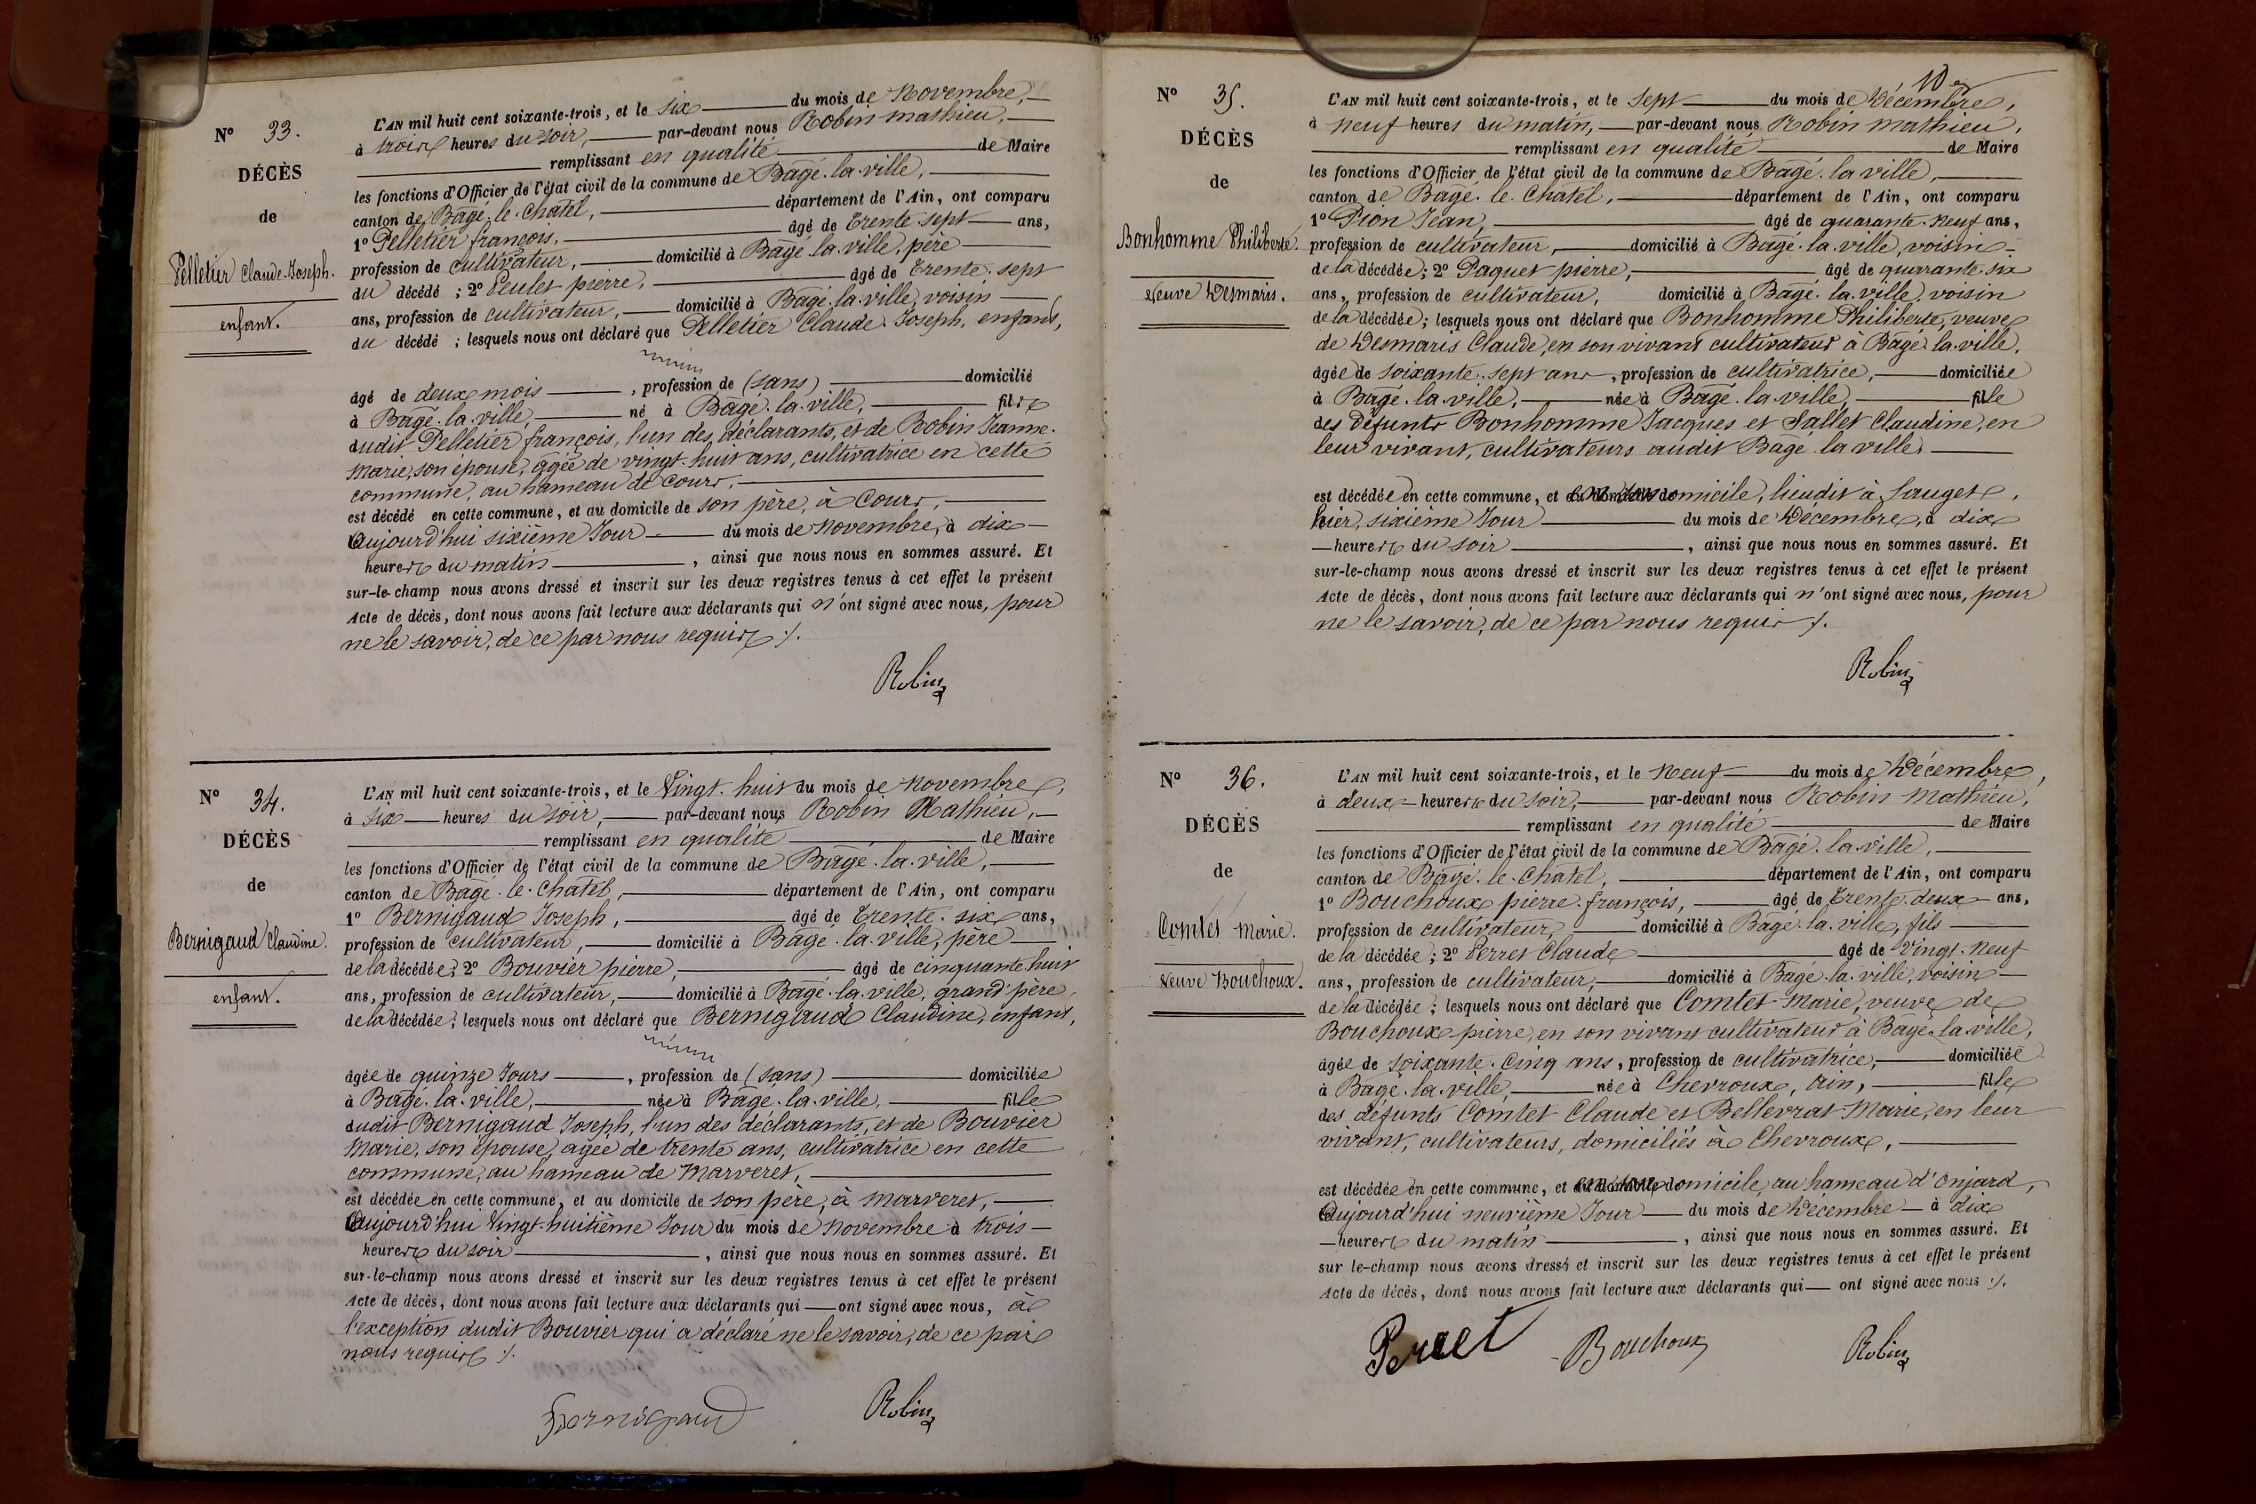 N° 33.
DÉCÈS
de
Pelletier Claude-Joseph.
enfant.
L'AN mil huit cent soixante-trois, et le six du mois de Novembre,
à trois heures du soir, par-devant nous Robin Mathieu,
remplissant en qualité de Maire
les fonctions d'Officier de l'état civil de la commune de Bâgé-la-ville,
canton de Bâgé-le-Châtel, département de l'Ain, ont comparu
1° Pelletier françois, âgé de Trente sept ans,
profession de cultivateur, domicilié à Bâgé-la-ville, père
du décédé ; 2° pierre, âgé de Trente-sept
ans, profession de cultivateur, domicilié à Bâgé-la-ville, voisin
du décédé ; lesquels nous ont déclaré que Pelletier Claude-Joseph, enfant,
âgé de deux mois, profession de (sans) domicilié
à Bâgé-la-ville, né à Bâgé-la-ville, fils
dudit Pelletier françois, l'un des déclarants, et de Robin Jeanne-
Marie, son épouse, âgée de vingt-huit ans, cultivatrice en cette
commune, au hameau de Cours,
est décédé en cette commune, et au domicile de son père, à Cours,
Aujourd'hui sixième Jour du mois de Novembre, à dix
heures du matin, ainsi que nous nous en sommes assuré. Et
sur-le-champ nous avons dressé et inscrit sur les deux registres tenus à cet effet le présent
Acte de décès, dont nous avons fait lecture aux déclarants qui n'ont signé avec nous, pour
ne le savoir, de ce par nous requis ./.
Robin
N° 34.
DÉCÈS
de
Bernigaud Claudine.
enfant.
L'AN mil huit cent soixante-trois, et le Vingt-huit du mois de Novembre,
à six heures du soir, par-devant nous Robin Mathieu,
remplissant en qualité de Maire
les fonctions d'Officier de l'état civil de la commune de Bâgé-la-ville,
canton de Bâgé-le-Châtel, département de l'Ain, ont comparu
1° Bernigaud Joseph, âgé de Trente-six ans,
profession de cultivateur, domicilié à Bâgé-la-ville, père
de la décédée ; 2° Bouvier pierre, âgé de cinquante huit
ans, profession de cultivateur, domicilié à Bâgé-la-ville, grand'père
de la décédée ; lesquels nous ont déclaré que Bernigaud Claudine, enfant,
âgée de quinze Jours, profession de (sans) domiciliée
à Bâgé-la-ville, née à Bâgé-la-ville, fille
dudit Bernigaud Joseph, l'un des déclarants, et de Bouvier
Marie, son épouse, âgée de trente ans, cultivatrice en cette
commune, au hameau de Marveret,
est décédée en cette commune, et au domicile de son père, à Marveret,
Aujourd'hui Vingt-huitième Jour du mois de Novembre à trois
heures du soir, ainsi que nous nous en sommes assuré. Et
sur-le-champ nous avons dressé et inscrit sur les deux registres tenus à cet effet le présent
Acte de décès, dont nous avons fait lecture aux déclarants qui ont signé avec nous, à
l'exception dudit Bouvier qui a déclaré ne le savoir, de ce par
nous requis ./.
Bernigaud Robin
10e
N° 35.
DÉCÈS
de
Bonhomme Philiberte.
Veuve Desmaris.
L'AN mil huit cent soixante-trois, et le Sept du mois de Décembre,
à neuf heures du matin, par-devant nous Robin Mathieu,
remplissant en qualité de Maire
les fonctions d'Officier de l'état civil de la commune de Bâgé-la-ville,
canton de Bâgé-le-Châtel, département de l'Ain, ont comparu
1° Pion Jean, âgé de quarante-neuf ans,
profession de cultivateur, domicilié à Bâgé-la-ville, voisin
de la décédée ; 2° Paquet pierre, âgé de quarante-six
ans, profession de cultivateur, domicilié à Bâgé-la-ville, voisin
de la décédée ; lesquels nous ont déclaré que Bonhomme Philiberte, veuve
de Desmaris Claude, en son vivant cultivateur à Bâgé-la-ville,
âgée de soixante-sept ans, profession de cultivatrice, domiciliée
à Bâgé-la-ville, née à Bâgé-la-ville, fille
des défunts Bonhomme Jacques et Sallet Claudine, en
leur vivant, cultivateurs audit Bâgé-la-ville,
est décédée en cette commune, et en son domicile, lieudit à Sauget,
hier, sixième Jour du mois de Décembre, à dix
heures du soir, ainsi que nous nous en sommes assuré. Et
sur-le-champ nous avons dressé et inscrit sur les deux registres tenus à cet effet le présent
Acte de décès, dont nous avons fait lecture aux déclarants qui n'ont signé avec nous, pour
ne le savoir, de ce par nous requis ./.
Robin
N° 36.
DÉCÈS
de
Comtet Marie.
Veuve Bouchoux.
L'AN mil huit cent soixante-trois, et le Neuf du mois de Décembre,
à deux heures du soir, par-devant nous Robin Mathieu,
remplissant en qualité de Maire
les fonctions d'Officier de l'état civil de la commune de Bâgé-la-ville,
canton de Bâgé-le-Châtel, département de l'Ain, ont comparu
1° Bouchoux pierre-françois, âgé de Trente-deux ans,
profession de cultivateur, domicilié à Bâgé-la-ville, fils
de la décédée ; 2° Perret Claude âgé de Vingt-neuf
ans, profession de cultivateur, domicilié à Bâgé-la-ville, voisin
de la décédée ; lesquels nous ont déclaré que Comtet Marie, veuve de
Bouchoux pierre, en son vivant cultivateur à Bâgé-la-ville,
âgée de soixante-cinq ans, profession de cultivatrice, domiciliée
à Bâgé-la-ville, née à Chevroux, Ain, fille
des défunts Comtet Claude et Bellevrat Marie, en leur
vivant, cultivateurs, domiciliés à Chevroux,
est décédée en cette commune, et en son domicile, au hameau d'Onjard,
Aujourd'hui neuvième Jour du mois de Décembre à dix
heures du matin, ainsi que nous nous en sommes assuré. Et
sur le-champ nous avons dressé et inscrit sur les deux registres tenus à cet effet le présent
Acte de décès, dont nous avons fait lecture aux déclarants qui ont signé avec nous ./.
Perret Bouchoux Robin